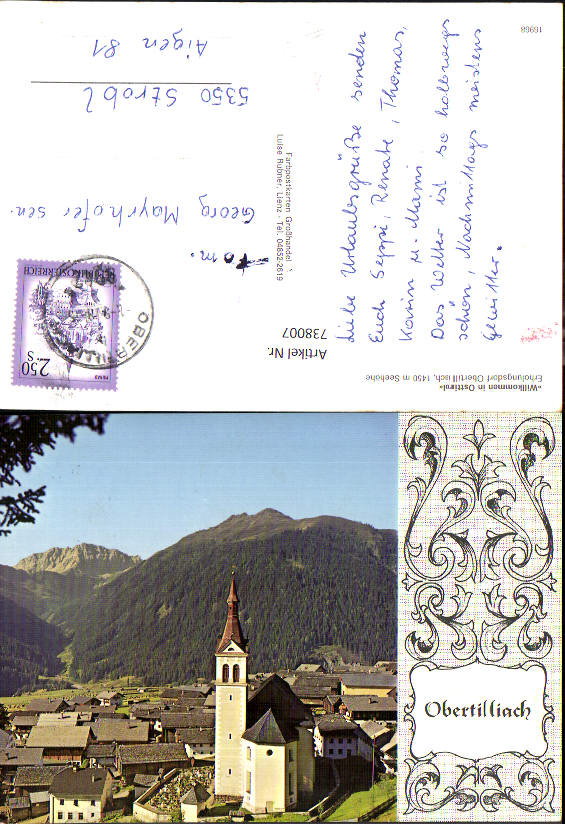 »Willkommen in Osttirol«
Erholungsdorf Obertilliach, 1450 m Seehöhe
Artikel Nr.
738007
Liebe Urlaubsgrüße senden
Euch Seppi, Renate, Thomas,
Karin u. Mami
Das Wetter ist so halbwegs
schön, Nachmittags meistens
Gewitter.
Farbpostkarten Großhandel
Luise Rubner, Lienz - Tel. 04852-2619
REPUBLIK ÖSTERREICH
2.50 S
OBERTILLI
Fam.
Georg Mayrhofer sen.
5350 Strobl
Aigen 81
16968
Obertilliach